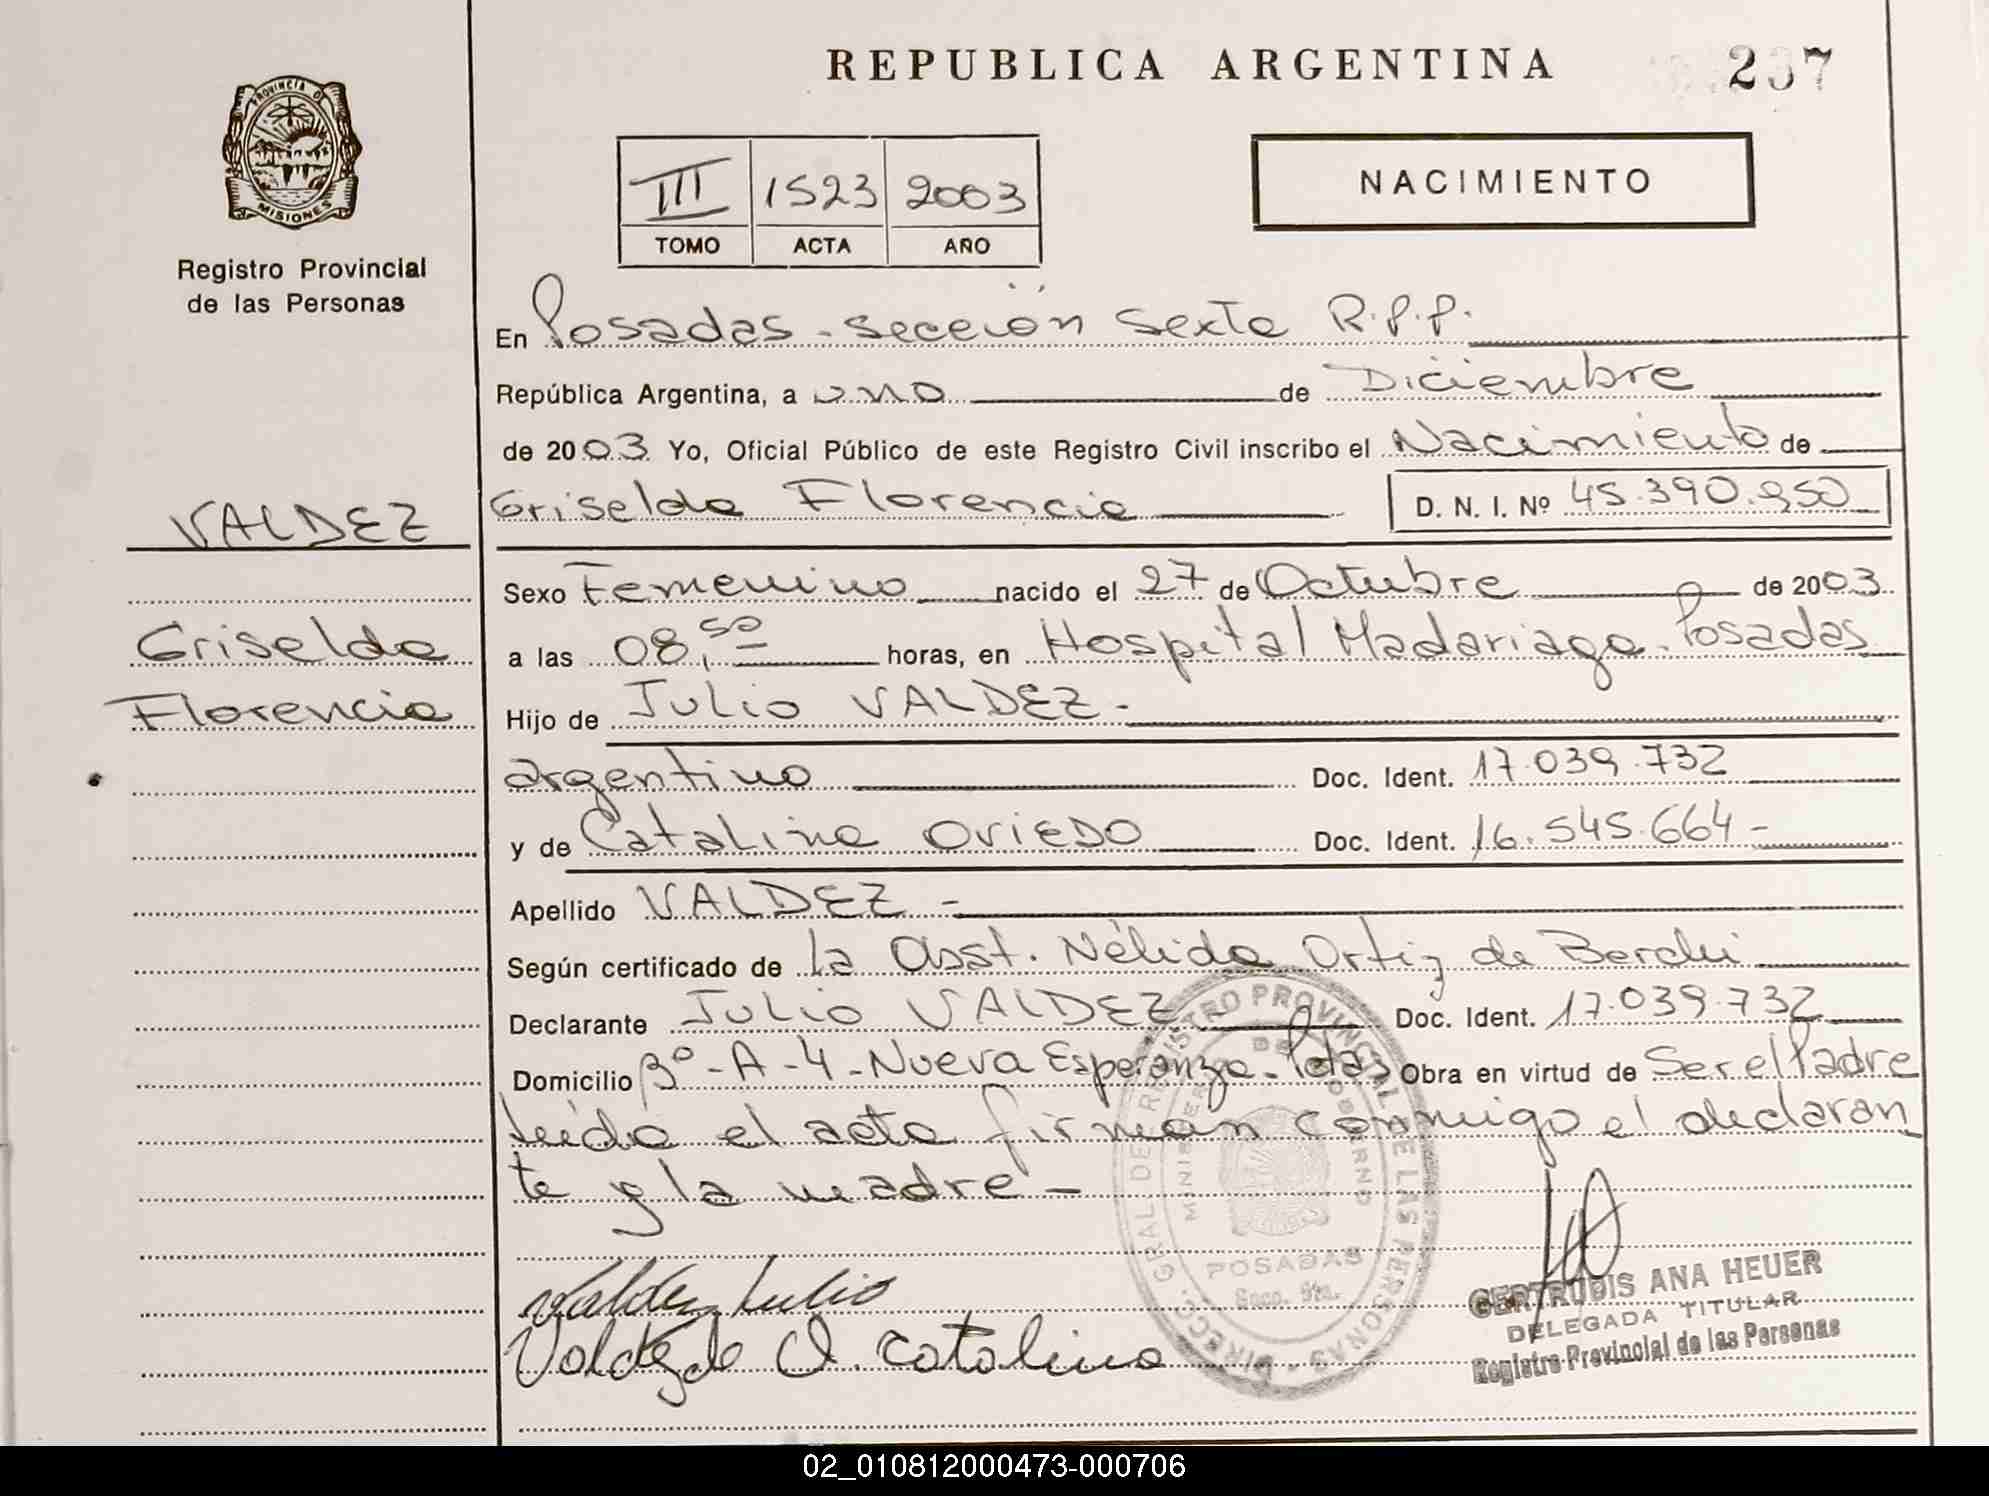 REPUBLICA ARGENTINA
237
PROVINCIA D
MISIONES
Registro Provincial
de las Personas
III 1523 2003
TOMO ACTA AÑO
NACIMIENTO
En Posadas - sección sexta R.P.P.
República Argentina, a uno de Diciembre
de 2003 Yo, Oficial Público de este Registro Civil inscribo el Nacimiento de
VALDEZ
Griselda Florencia D. N. I. Nº 45.390.950
Sexo Femenino nacido el 27 de Octubre de 2003
Griselda
a las 08,50 horas, en Hospital Madariaga - Posadas
Florencia
Hijo de Julio VALDEZ -
argentino Doc. Ident. 17.039.732
y de Catalina OVIEDO Doc. Ident. 16.545.664-
Apellido VALDEZ -
Según certificado de la Obst. Nélida Ortiz de
Declarante Julio VALDEZ Doc. Ident. 17.039.732
Domicilio Bº-A-4-Nueva Esperanza-Pdas Obra en virtud de Ser el Padre
leída el acta firman conmigo el declaran
te y la madre -
Valdez Julio
Valdez de O. Catalina
DIRECC. GRAL DE REGISTRO PROVINCIAL DE LAS PERSONAS
MINISTERIO DE GOBIERNO
POSADAS
Secc. 6ta.
GERTRUDIS ANA HEUER
DELEGADA TITULAR
Registro Provincial de las Personas
02_010812000473-000706